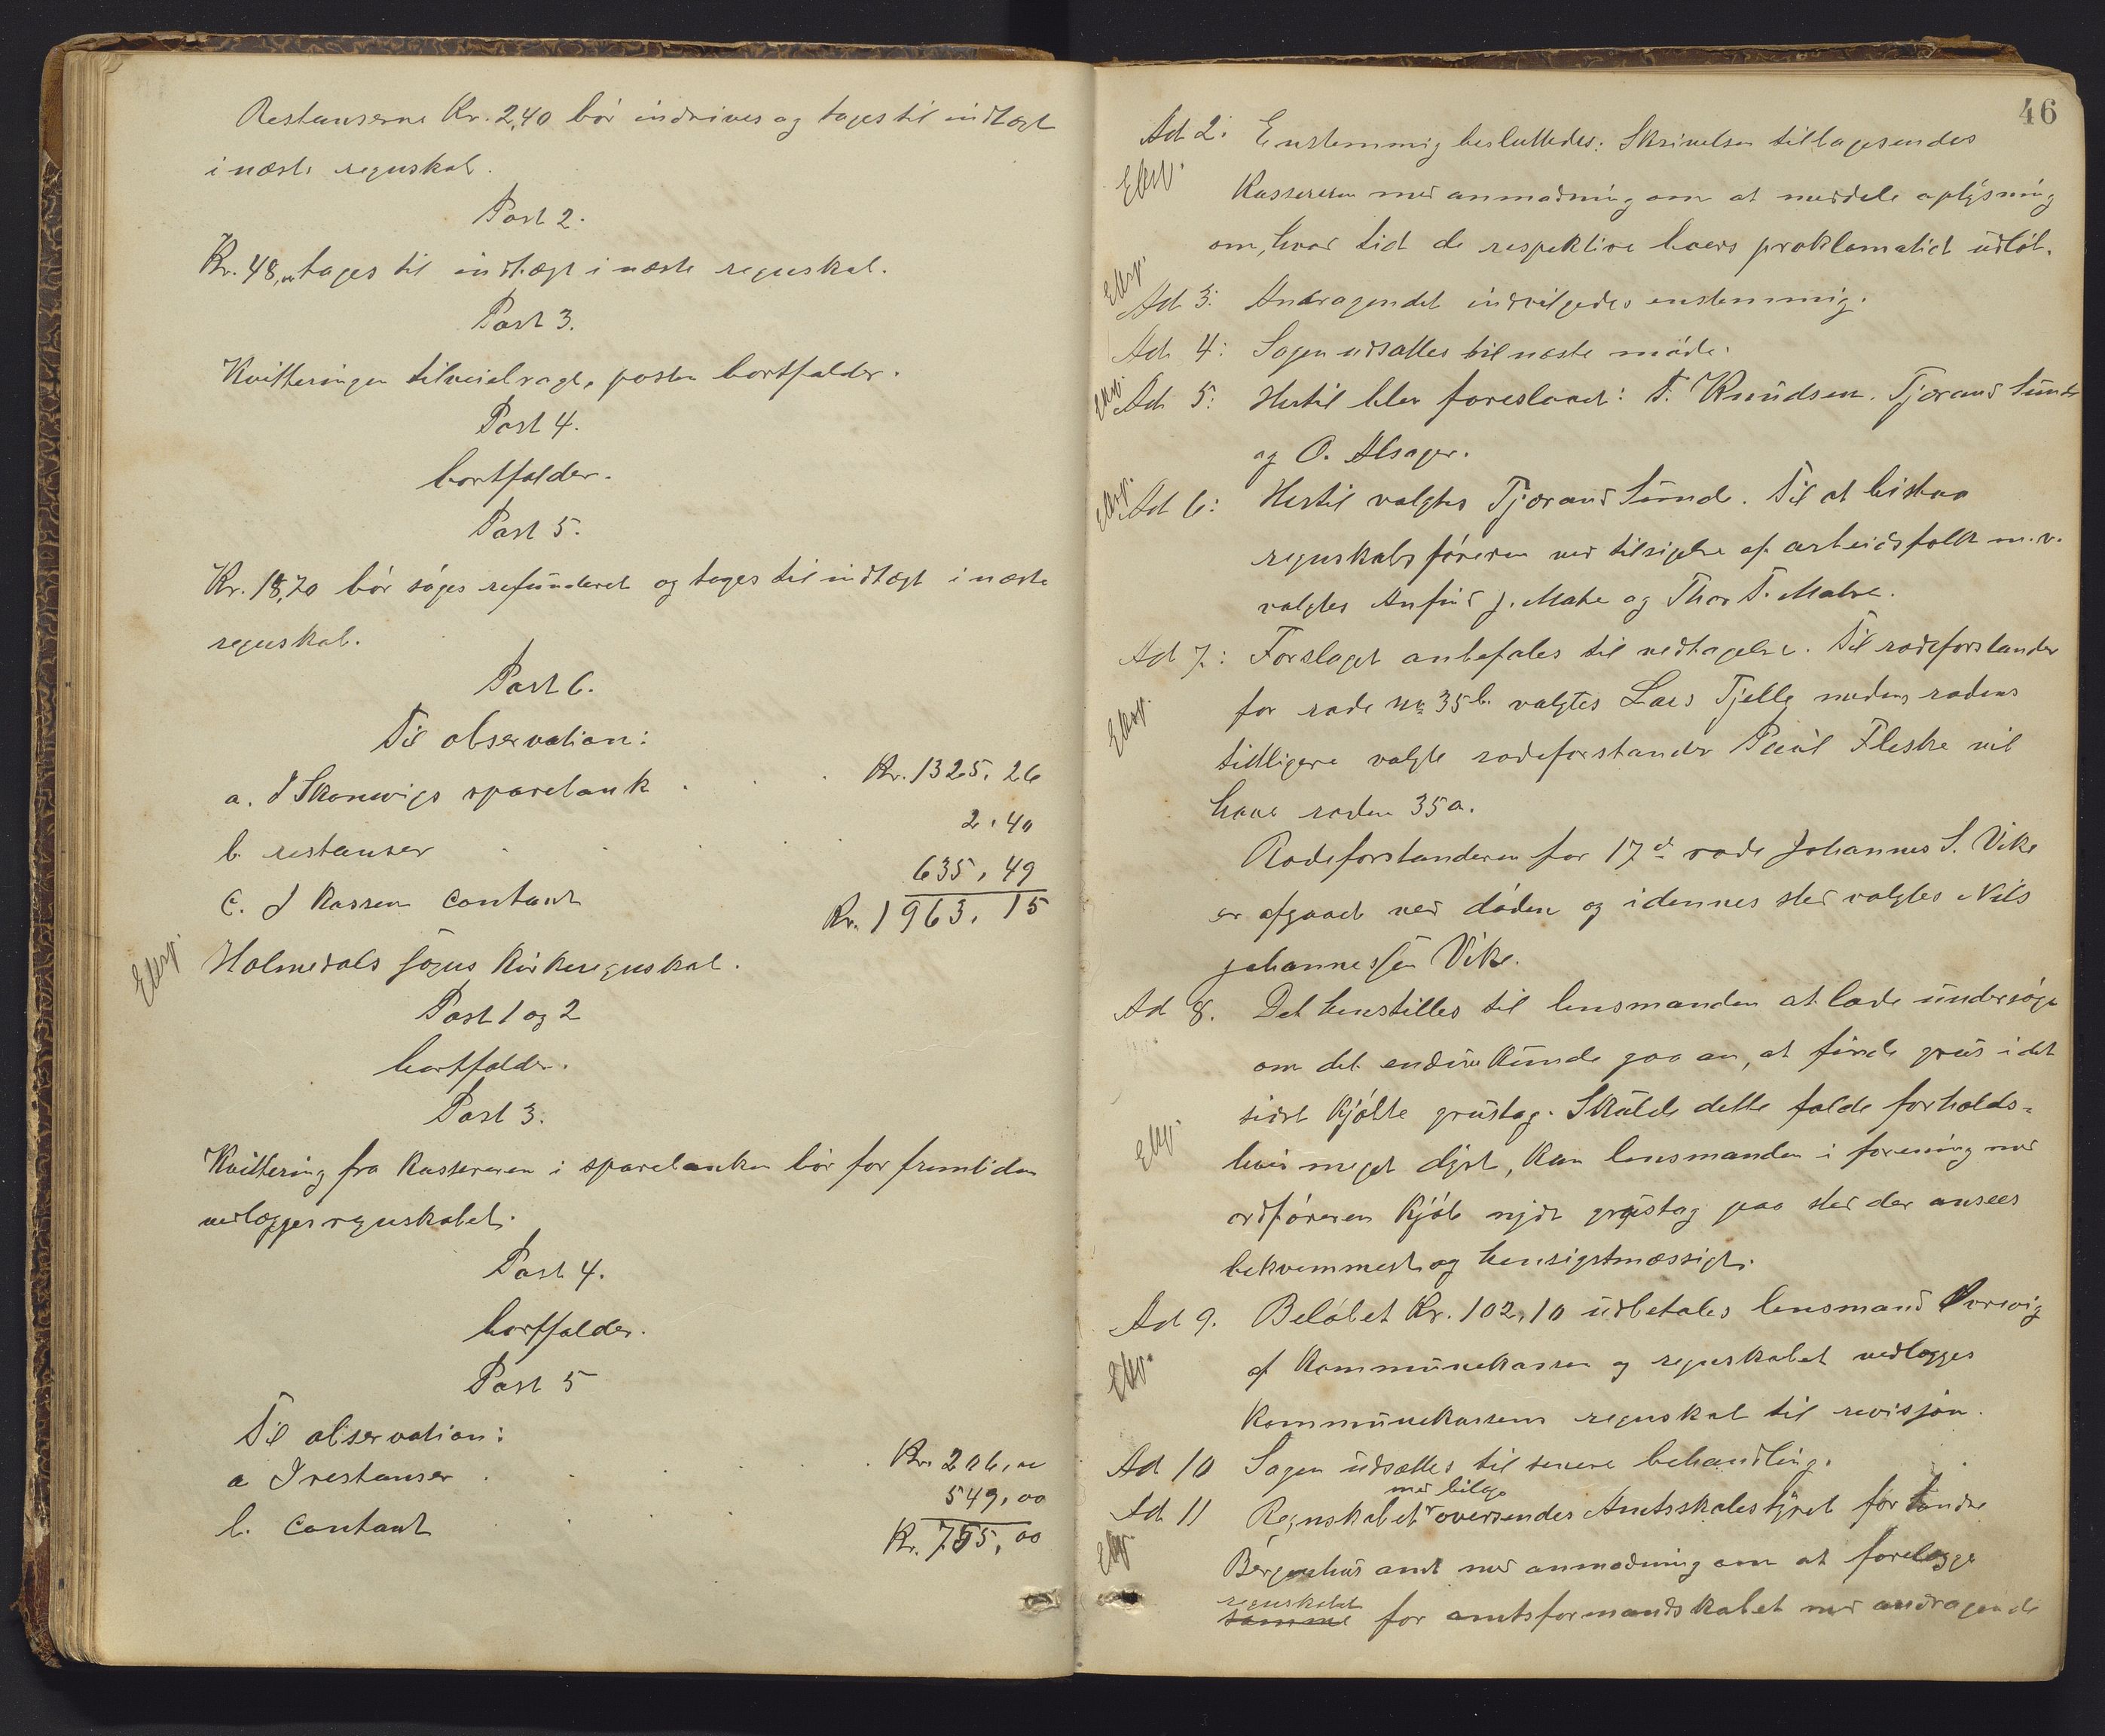 Restanserne Kr. 2,40 bør inddrives og tages til indtægt
i næste regnskab.
Post 2.
Kr. 48,00 tages til indtægt i næste regnskab.
Post 3.
Kvitteringen tilveiebragt, posten bortfalder.
Post 4.
bortfalder.
Post 5.
Kr. 18,70 bør søges refunderet og tages til indtægt i næste
regnskab.
Post 6.
Til observation:
a. I Skonevigs sparebank . . Kr. 1325,26
b. restanser . . . . 2,40
c. I kassen contant 635,49
Kr. 1963,15
Eksp. Holmedals sogns kirkeregnskab.
Post 1 og 2
bortfalder.
Post 3.
Kvittering fra kassereren i sparebanken bør for fremtiden
vedlægges regnskabet.
Post 4.
bortfalder.
Post 5
Til observation:
a I restanser . . . . . Kr. 206,00
b. contant . . . . 549,00
Kr. 755,00
46
Ad 2: Enstemmig besluttedes: Skrivelsen tilbagesendes
Eksp.
Kassereren med anmodning om at meddele oplysning
om, hvad tid de respektive boers proklamatid udløb.
Eksp.
Ad 3: Andragendet indvilgedes enstemmig.
Ad 4: Sagen udsattes til næste møde.
Eksp. Ad 5: Hertil blev foreslaaet: T. Knudsen. Tjerand Sunde
og O. Alsager.
Eksp. Ad 6: Hertil valgtes Tjerand Sunde. Til at bistaa
regnskabsføreren ved tilsigelse af arbeidsfolk m.v.
valgtes Anfind J. Matre og Thor T. Matre.
Ad 7: Forslaget anbefales til vedtagelse. Til rodeforstander
Eksp.
for rode no 35 b. valgtes Lars Tjelle medens rodens
tidligere valgte rodeforstander Paul Fleske vil
have roden 35 a.
Rodeforstanderen for 17d rode Johannes S. Vike
er afgaaet ved døden og i dennes sted valgtes Nils
Johannessen Vike.
Ad 8. Det henstilles til lensmanden at lade undersøge
om det endnu kunde gaa an, at finde grus i det
sidst kjøbte grustag. Skulde dette falde forholds=
Eksp.
hvis meget dyrt, kan lensmanden i forening med
ordføreren kjøbe nydt grustag paa sted der ansees
bekvemmest og hensigtmæssigt.
Ad 9. Beløbet Kr. 102,10 udbetales lensmand Vrevig
Eksp.
af kommunekassen og regnskabet vedlægges
kommunekassens regnskab til revisjon.
Ad 10 Sagen udsættes til senere behandling.
med bilag
Ad 11 Regnskabet oversendes Amtsskolestyret for søndre
Eksp.
Bergenhus amt med anmodning om at forelægge
regnskabet
samme for amtsformandskabet med andragende